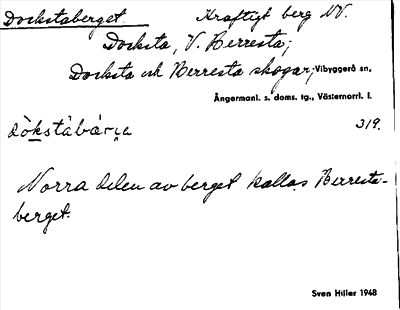 Dockstaberget Kraftigt berg NV.
Docksta, V. Berresta;
Docksta och Berresta skogar; Vibyggerå sn,
Ångermanl. s. doms. tg., Västernorrl. l.
dòkstàbárɩa 319.
Norra delen av berget kallas Berresta-
berget.
Sven Hiller 1948